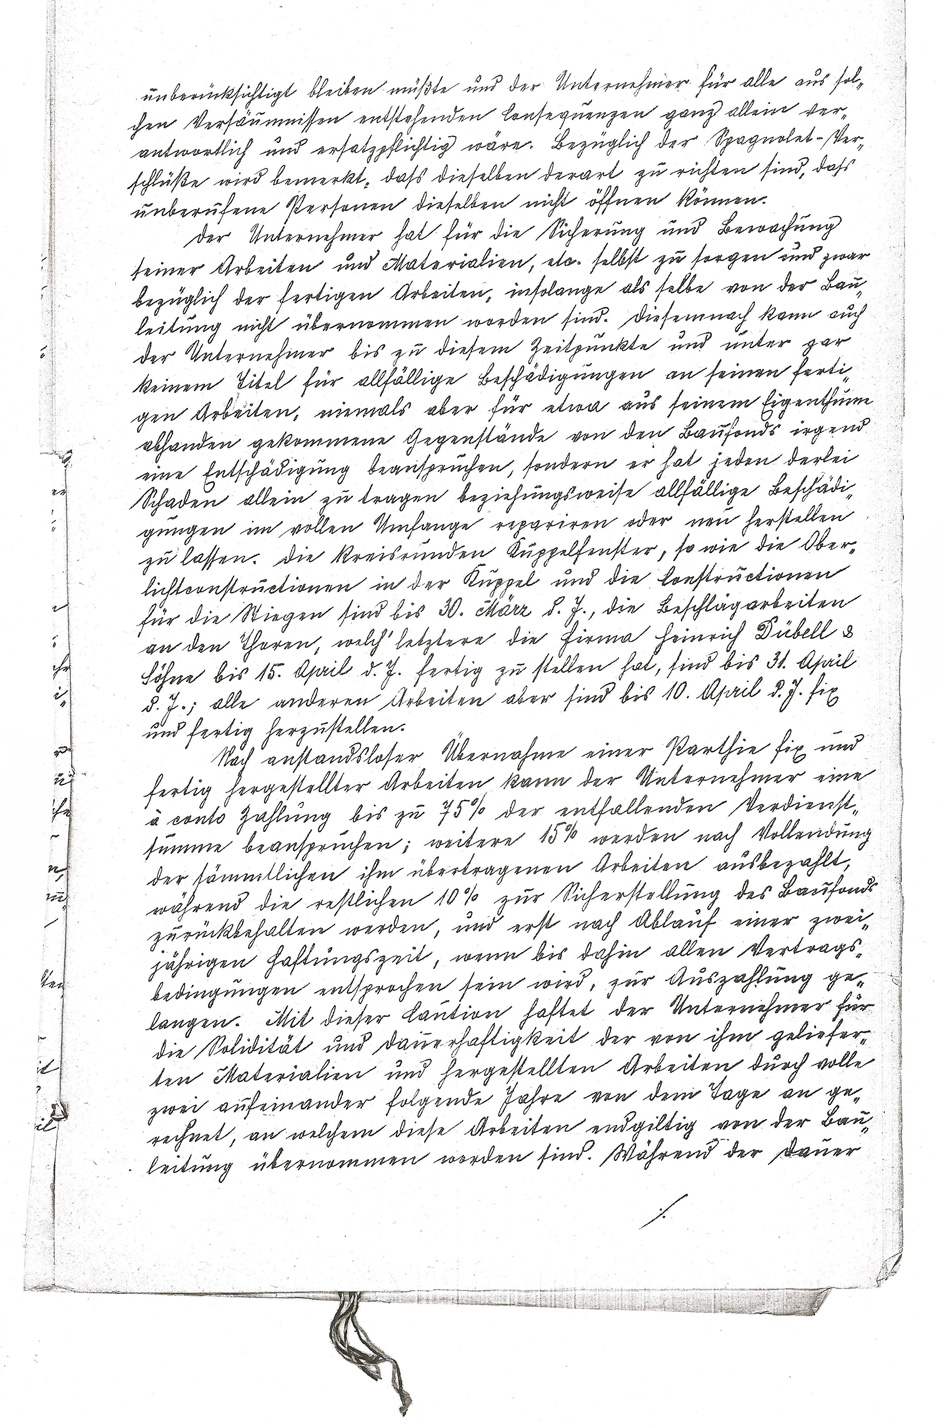 unberücksichtigt bleiben müßte und der Unternehmer für alle aus sol-
chen Versäumnissen entstehenden Consequenzen ganz allein ver-
antwortlich und ersatzpflichtig wäre. Bezüglich der Spagnolet-Ver-
schlüße wird bemerkt, dass dieselben derart zu richten sind, dass
unberufene Personen dieselben nicht öffnen können.
Der Unternehmer hat für die Sicherung und Bewachung
seiner Arbeiten und Materialien, etc. selbst zu sorgen und zwar
bezüglich der fertigen Arbeiten, insolange als selbe von der Bau-
leitung nicht übernommen worden sind. Diesemnach kann auch
der Unternehmer bis zu diesem Zeitpunkte und unter gar
keinem Titel für allfällige Beschädigungen an seinen ferti-
gen Arbeiten, niemals aber für etwa aus seinem Eigenthume
abhanden gekommene Gegenstände von den Baufonds irgend
eine Entschädigung beanspruchen, sondern er hat jeden derlei
Schaden allein zu tragen beziehungsweise allfällige Beschädi-
gungen im vollen Umfange repariren oder neu herstellen
zu lassen. Die kreisrunden Kuppelfenster, so wie die Ober-
lichtconstructionen in der Kuppel und die Constructionen
für die Stiegen sind bis 30. März d. J., die Beschlägarbeiten
an den Thoren, welch' letztere die Firma Heinrich Dübell &
Söhne bis 15. April d. J. fertig zu stellen hat, sind bis 31. April
d. J.; alle anderen Arbeiten aber sind bis 10. April d. J. fix
und fertig herzustellen.
Nach anstandsloser Übernahme einer Parthie fix und
fertig hergestellter Arbeiten kann der Unternehmer eine
à conto Zahlung bis zu 75% der entfallenden Verdienst-
summe beanspruchen; weitere 15% werden nach Vollendung
der sämmtlichen ihm übertragenen Arbeiten ausbezahlt,
während die restlichen 10% zur Sicherstellung des Baufonds
zurückbehalten werden, und erst nach Ablauf einer zwei-
jährigen Haftungszeit, wenn bis dahin allen Vertrags-
bedingungen entsprochen sein wird, zur Auszahlung ge-
langen. Mit dieser Caution haftet der Unternehmer für
die Solidität und Dauerhaftigkeit der von ihm geliefer-
ten Materialien und hergestellten Arbeiten durch volle
zwei aufeinander folgende Jahre von dem Tage an ge-
rechnet, an welchem diese Arbeiten endgiltig von der Bau-
leitung übernommen worden sind. Während der Dauer
./.